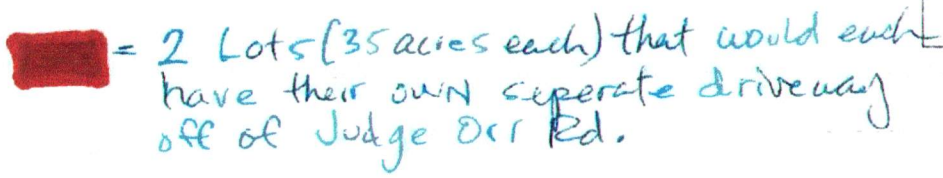 = 2 Lots (35 acres each) that would each
have their own seperate driveway
off of Judge Orr Rd.